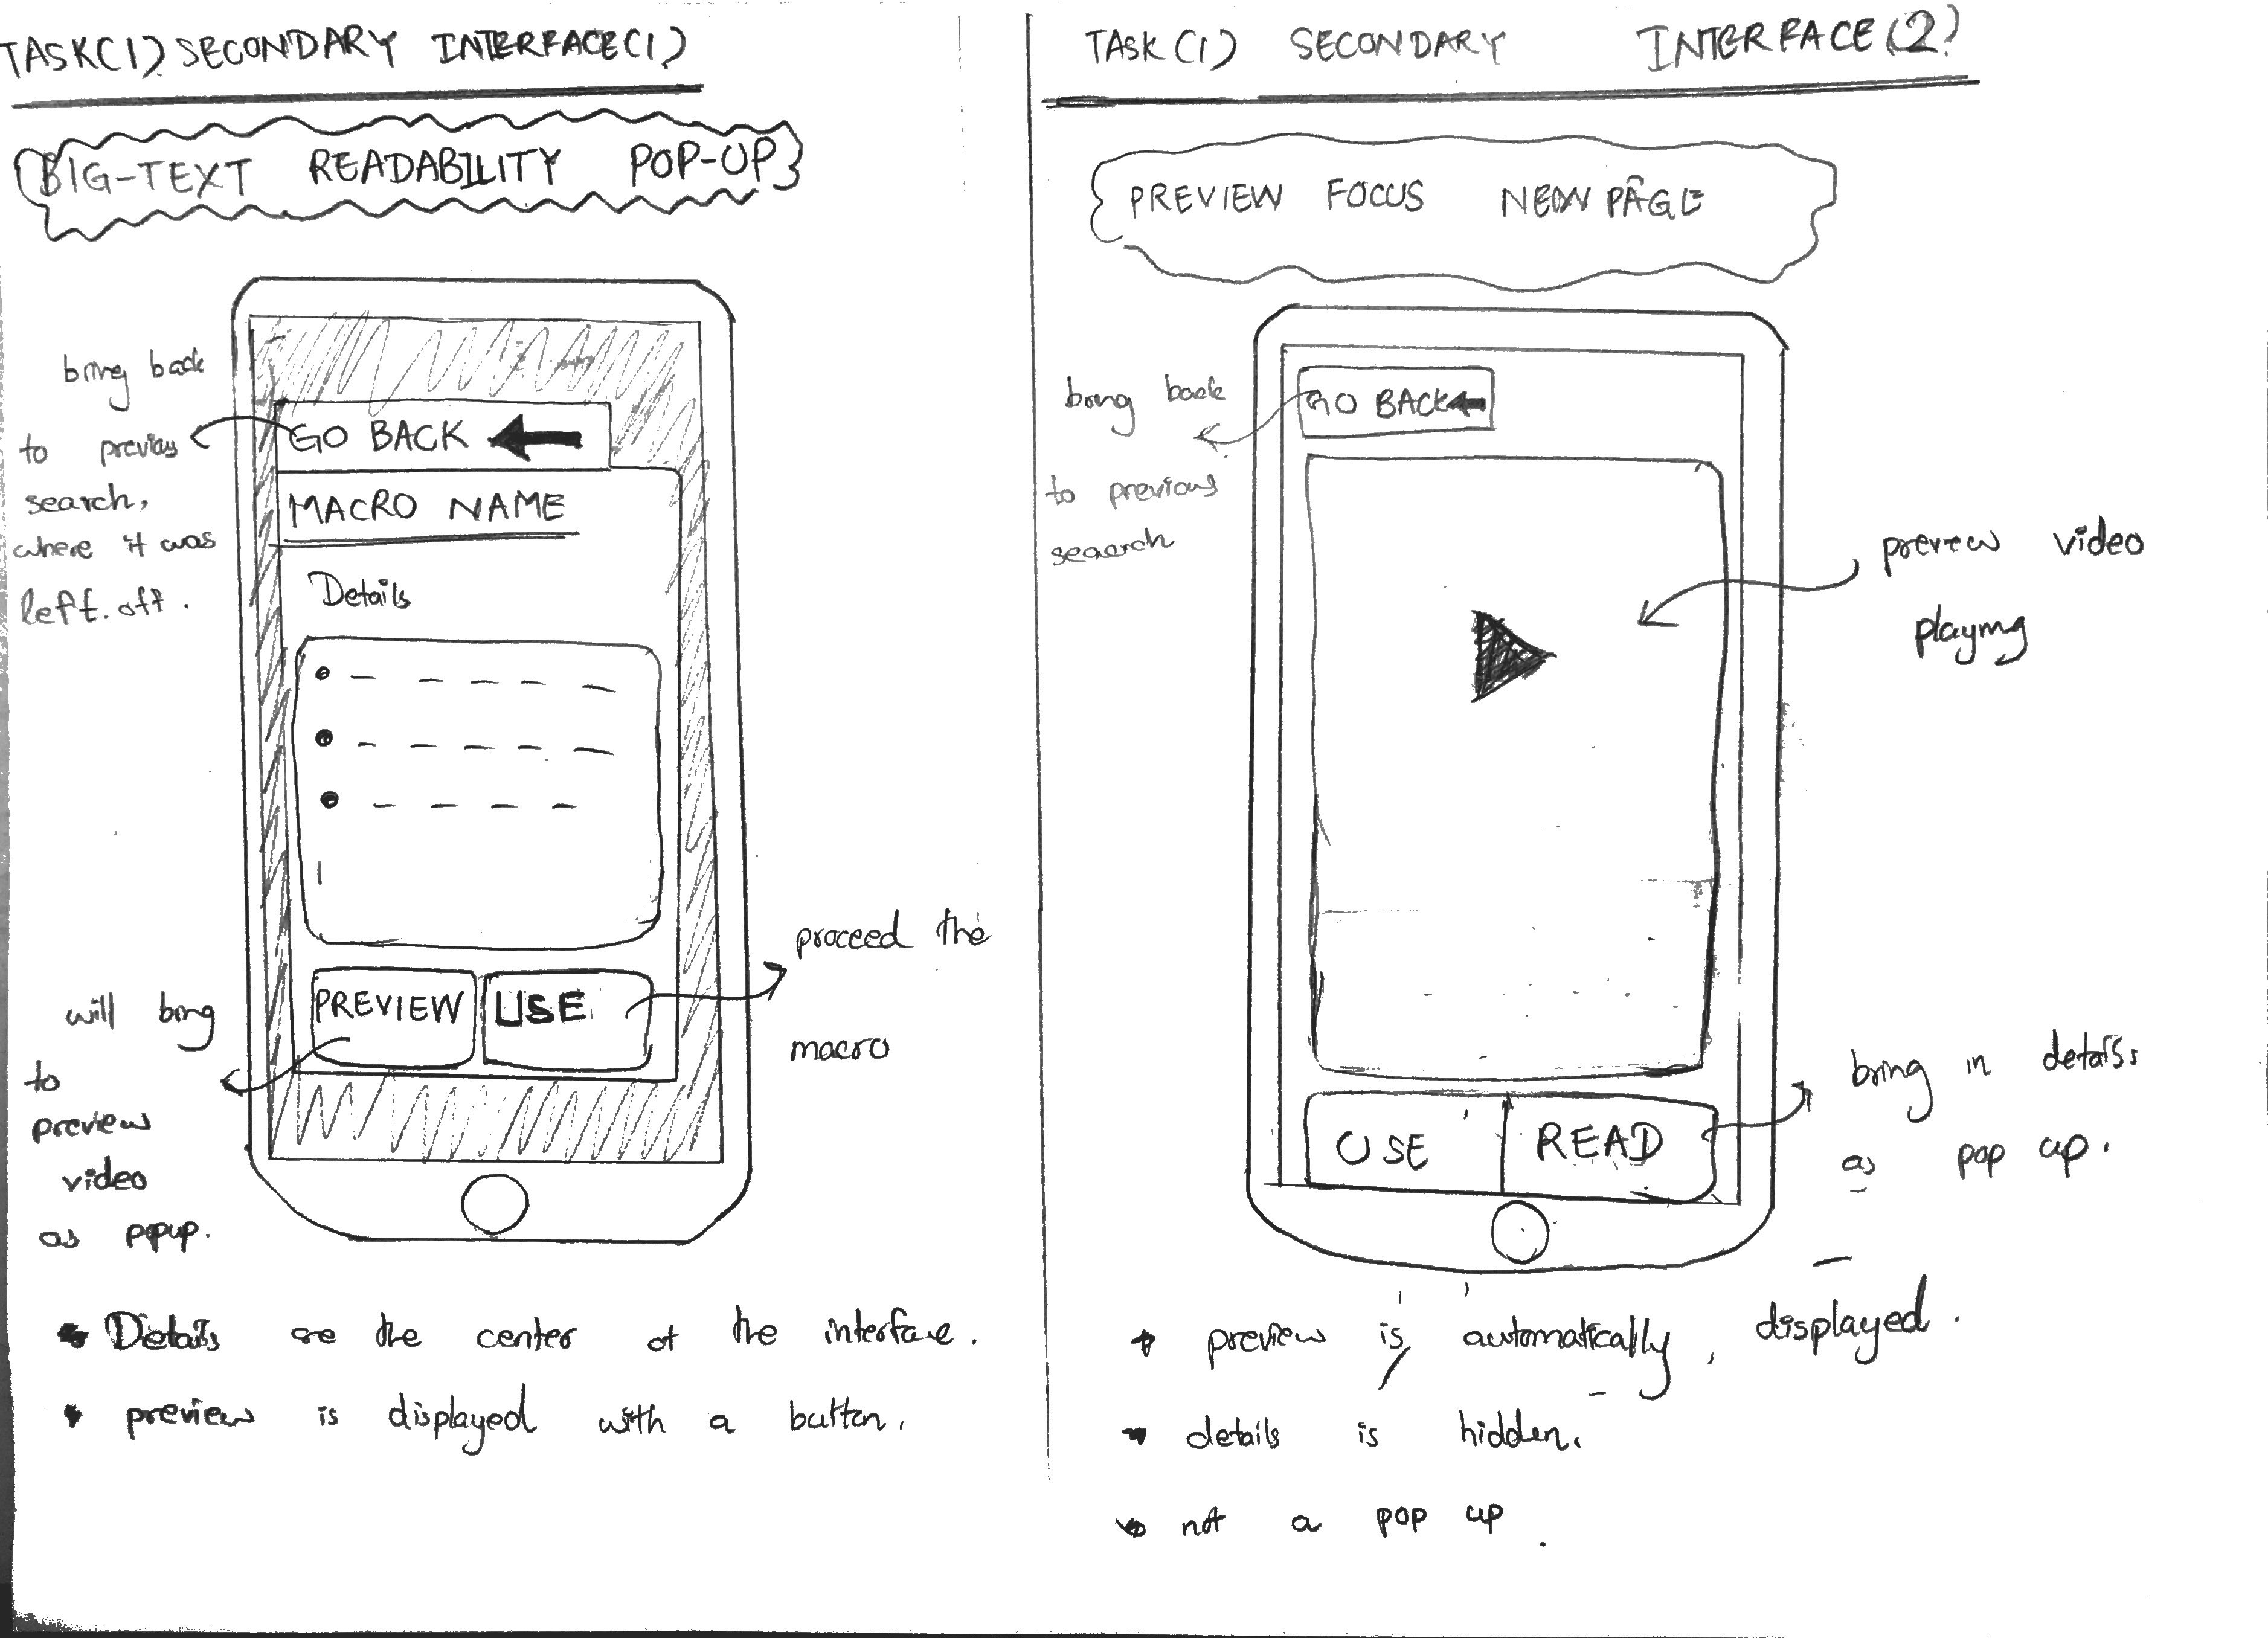 TASK(1) SECONDARY INTERFACE(1)
BIG-TEXT READABILITY POP-UP
bring back
to previous
search,
where it was
left off.
GO BACK
MACRO NAME
Details
PREVIEW USE
proceed the
macro
will bring
to
preview
video
as popup.
Details are the center of the interface.
preview is displayed with a button.
TASK(1) SECONDARY INTERFACE(2)
PREVIEW FOCUS NEW PAGE
bring back
to previous
seaerch
GO BACK
preview video
playing
USE READ
bring in details
as pop up.
preview is automatically displayed.
details is hidden.
not a pop up